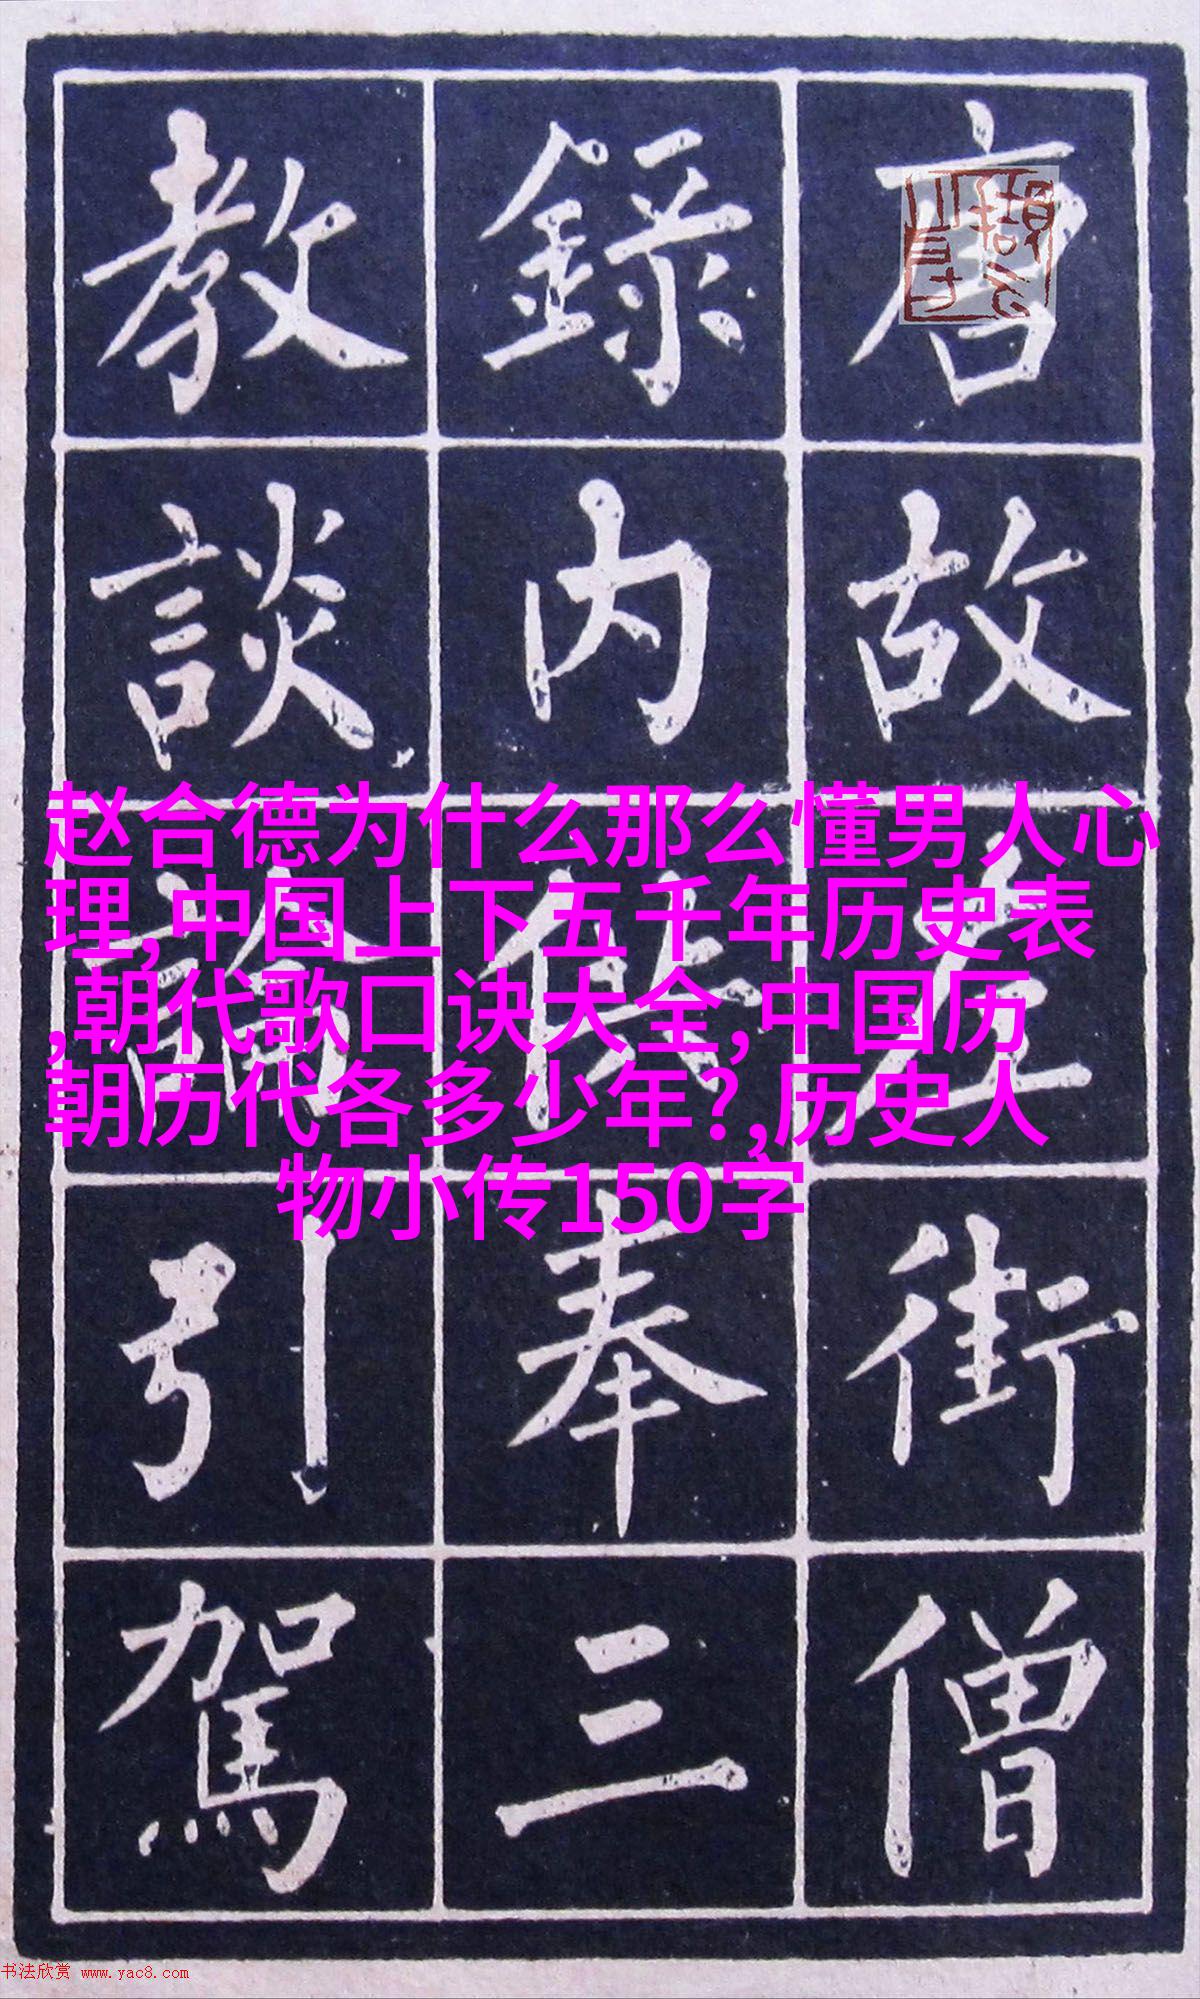 唐故左街僧
錄內供奉三
教談論引駕
赵合德为什么那么懂男人心
理,中国上下五千年历史表
,朝代歌口诀大全,中国历
朝历代各多少年?,历史人
物小传150字
书法欣赏 www.yac8.com